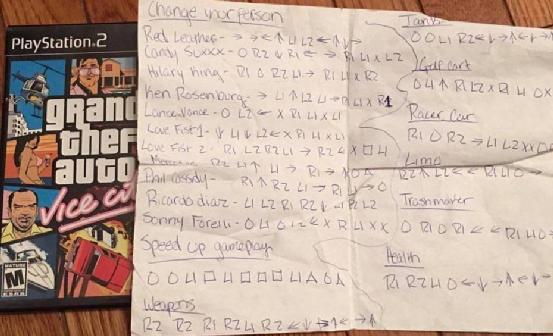 PlayStation 2
grand
theft
auto
Vice City
MATURE
M
ESRB
Change your person
Red Leather - → → ← ↑ L1 L2 ← ↑ ↓ →
Candy Suxxx - O R2 ↓ R1 ← → R1 L1 X L2
Hilary King - R1 O R2 L1 → R1 L1 X R2
Ken Rosenburg - → L1 ↑ L2 L1 → R1 L1 X R1
Lance Vance - O L2 ← X R1 L1 X L1
Love Fist 1 - ↓ L1 ↓ L2 ← X R1 L1 X L1
Love Fist 2 - R1 L2 R2 L1 → R2 ← X □ L1
R2 L1 ↑ L1 → R1 →
Phil Cassidy - R1 ↑ R2 L1 → R1 → O
Ricardo diaz - L1 L2 R1 R2 ↓ R2 L2
Sonny Forelli - O L1 O L2 ← X R1 L1 X X
Speed up gameplay
O O L1 □ L1 □ □ □ L1 △ O △
Weapons
R2 R2 R1 R2 L1 R2 ← ↓ → ↑ ← ↓ → ↑
Tank
O O L1 R2 ← ↓ → ↑ ← ↓ →
Golf cart
O L1 ↑ R1 L2 X R1 L1 O X
Racer Car
R1 O R2 → L1 L2 X X □
Limo
R2 ↑ L2 ← ← R1 L1 O →
Trashmaster
O R1 O R1 ← ← R1 L1 O
Health
R1 R2 L1 O ← ↓ → ↑ ← ↓ →